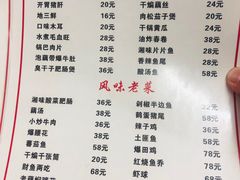 开胃猪肝 20元
地三鲜 16元
口味木耳 28元
水煮毛血旺
锅巴肉片 32元
泡藕带爆牛肚 36元
臭干子肥肠煲 36元
干煸藕丝 24元
肉松茄子煲 20元
干锅黄瓜 24元
油炸春卷 38元
湘味片片鱼 48元
香辣尾尾 48元
酸汤鱼 58元
风味老菜
湘味酸菜肥肠 36元
藕汤 36元
小炒牛肉 36元
爆腰花 38元
番茄鱼 58元
干煸干张筒 20元
财鱼两吃 68元
剁椒半边鱼 36元
鹤蛋猪尾 58元
辣子鸡 36元
土匪鱼 36元
爆田鸡 58元
红烧鱼乔
虾球 68元